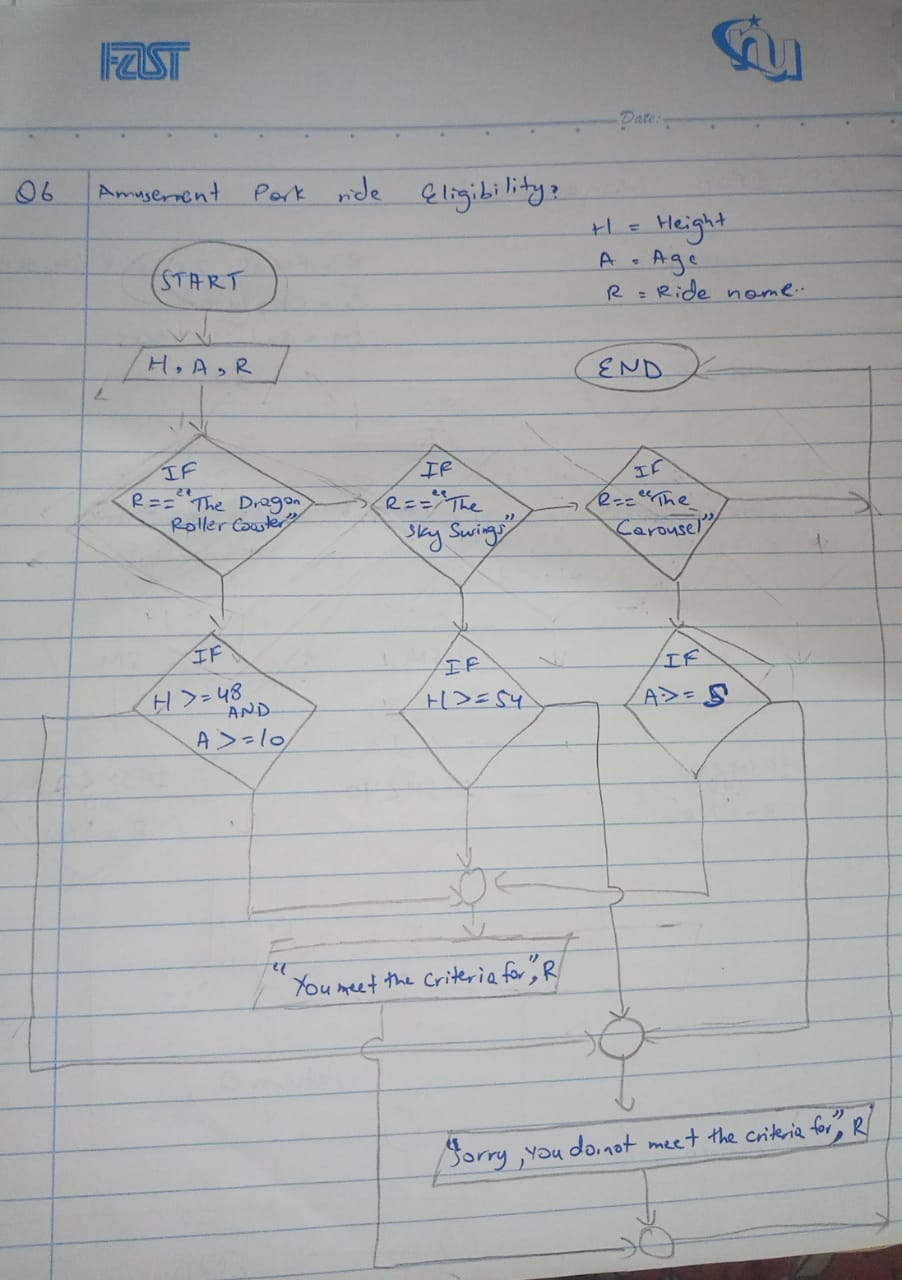 FAST
nu
Date:
Q6 Amusement Park ride Eligibility?
H = Height
A = Age
R = Ride name..
START
H, A, R
END
IF
R=="The Dragon
Roller Coaster"
IF
R=="The
Sky Swings"
IF
R=="The
Carousel"
IF
H >=48
AND
A >=10
IF
H>=54
IF
A>= 5
"You meet the criteria for", R
"Sorry, you do not meet the criteria for", R